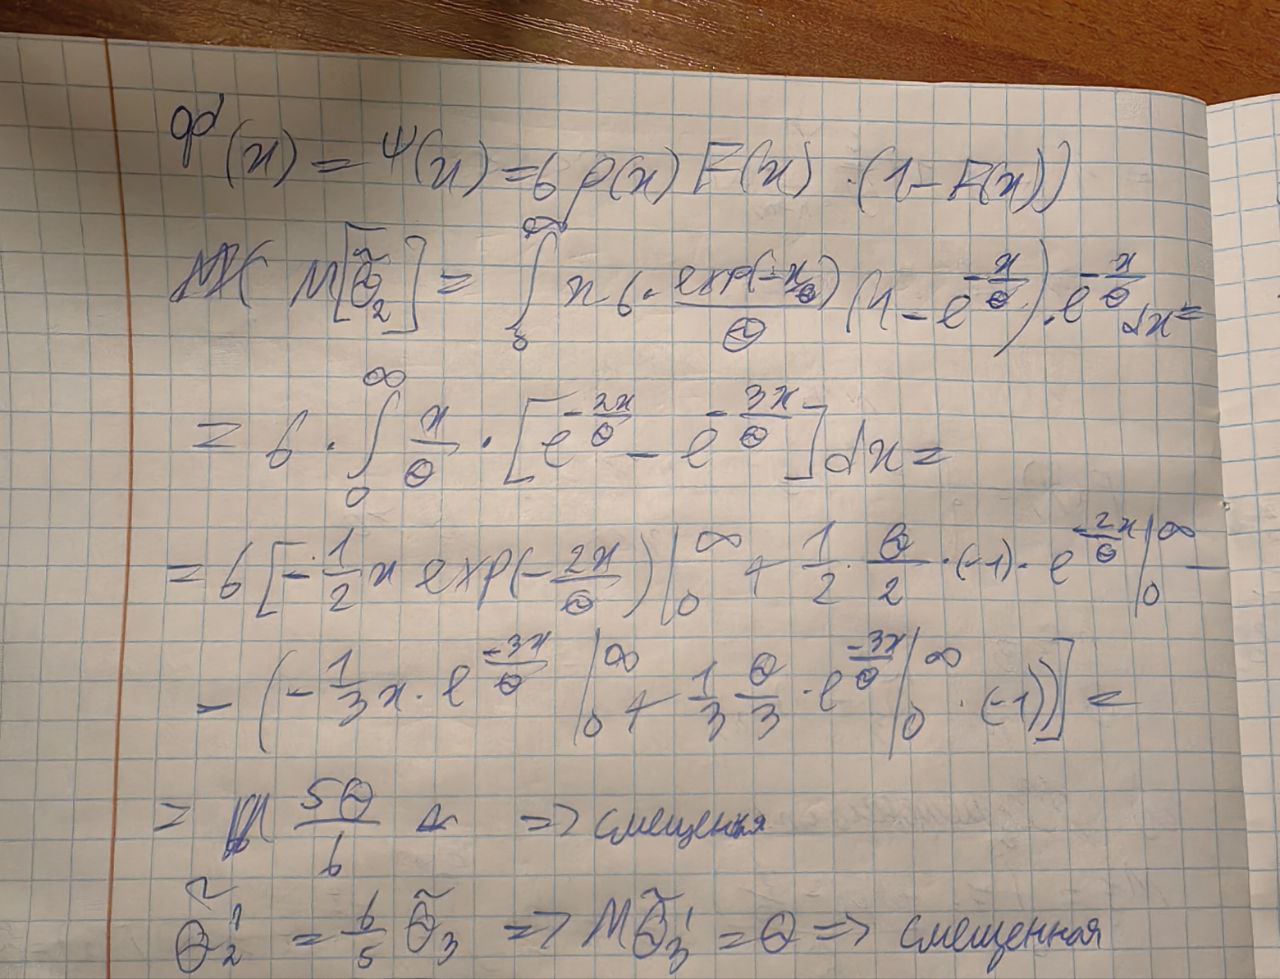 φ'(x) = ψ(x) = 6 p(x) F(x) · (1 - F(x))
M[θ̃₂] = ∫₀^∞ x 6 · exp(-x/θ)/θ (1 - e^(-x/θ)) · e^(-x/θ) dx =
= 6 · ∫₀^∞ x/θ · [e^(-2x/θ) - e^(-3x/θ)] dx =
= 6 [-1/2 x exp(-2x/θ) |₀^∞ + 1/2 · θ/2 · (-1) · e^(-2x/θ) |₀^∞ -
- (-1/3 x · e^(-3x/θ) |₀^∞ + 1/3 θ/3 · e^(-3x/θ) |₀^∞ · (-1))] =
= 5θ/6 => смещенная
θ̃₂' = 6/5 θ̃₃ => Mθ̃₃' = θ => смещенная